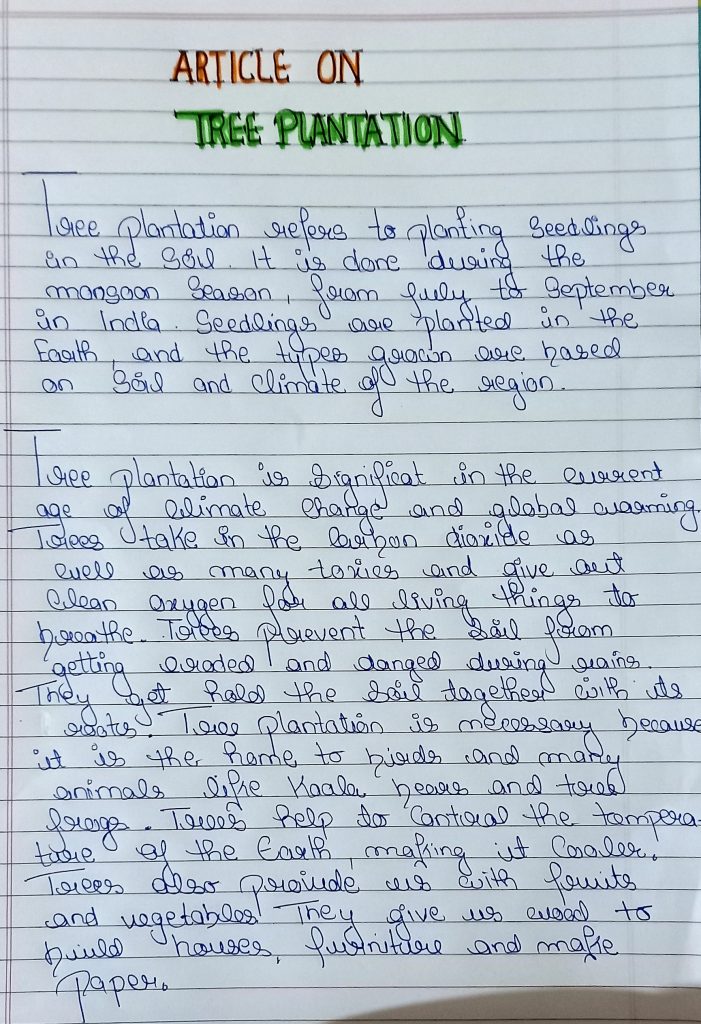 ARTICLE ON
TREE PLANTATION
Tree plantation refers to planting seedlings
in the soil. It is done during the
monsoon season, from july to September
in India. Seedlings are planted in the
Earth, and the types grown are based
on soil and climate of the region.
Tree plantation is significat in the current
age of climate change and global warming.
Trees take in the carbon dioxide as
well as many toxics and give out
clean oxygen for all living things to
breathe. Trees prevent the soil from
getting eroded and danged during rains.
They get hold the soil together with its
roots. Tree plantation is necessary because
it is the home to birds and many
animals like Koala bears and tree
frongs. Trees help to control the tempera-
ture of the Earth, making it Cooler.
Trees also provide us with fruits
and vegetables They give us wood to
build houses, furniture and make
paper.